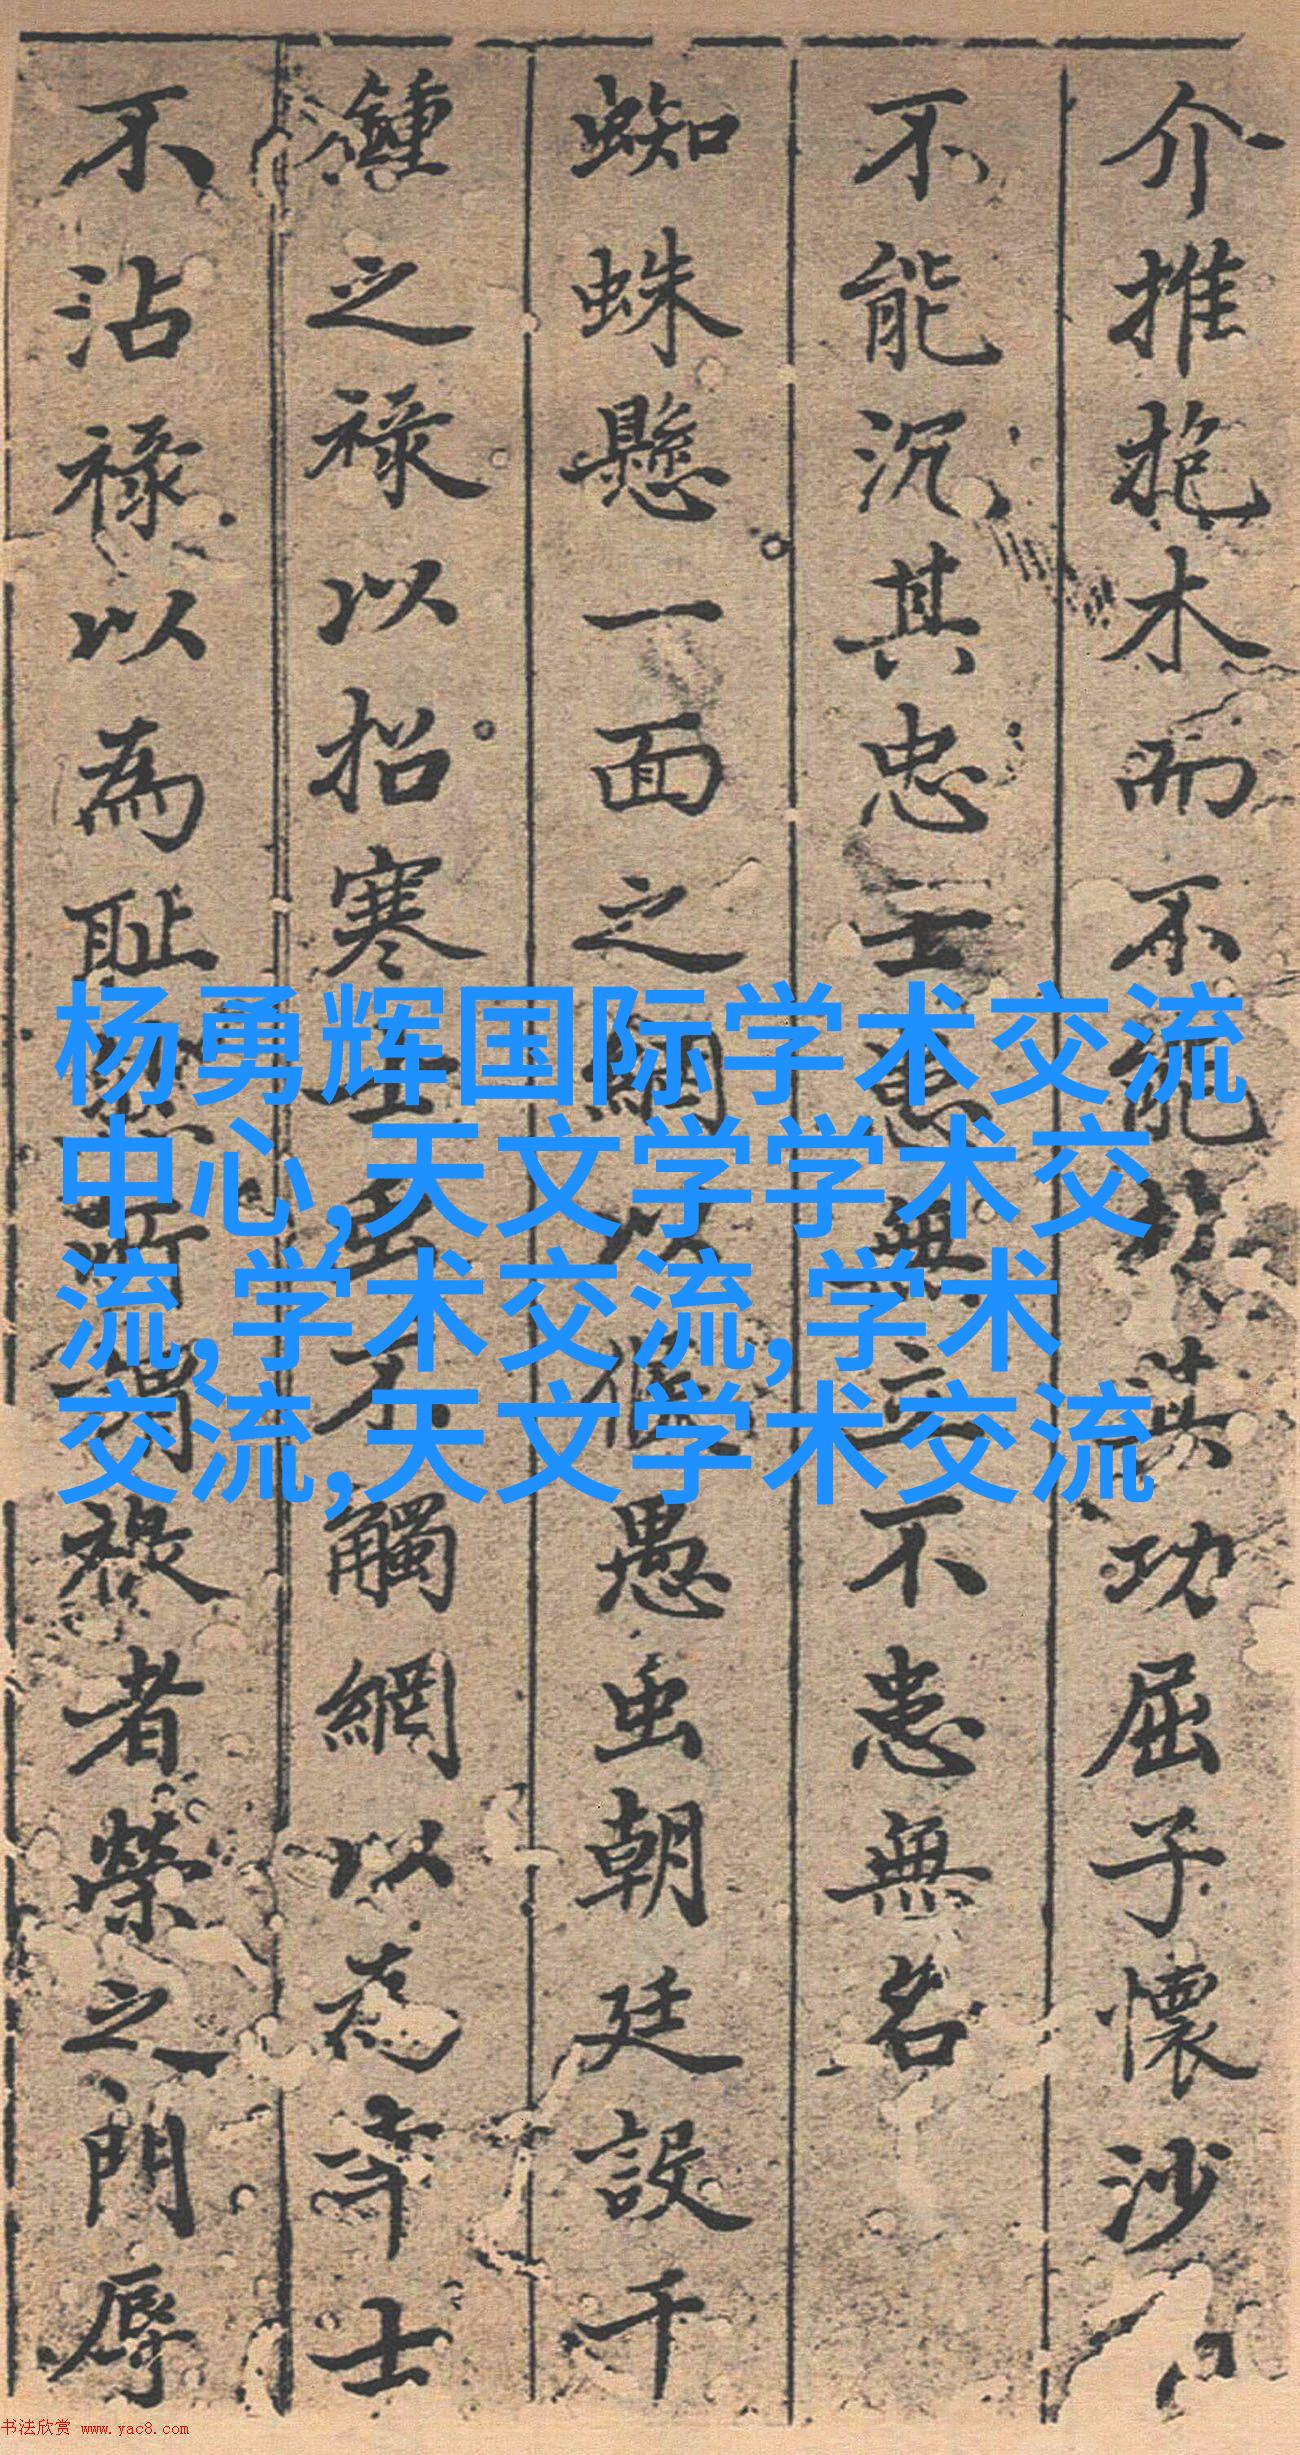 介推抱木而不能扶其功屈子懷沙
不能沉其忠士患無立不患無名
蜘蛛懸一面之網以羅愚虫朝廷設千
鍾之祿以招寒士虫不觸網以為幸士
不沾祿以為耻然所謂祿者榮之門辱
杨勇辉国际学术交流
中心,天文学学术交
流,学术交流,学术
交流,天文学术交流
书法欣赏 www.yac8.com